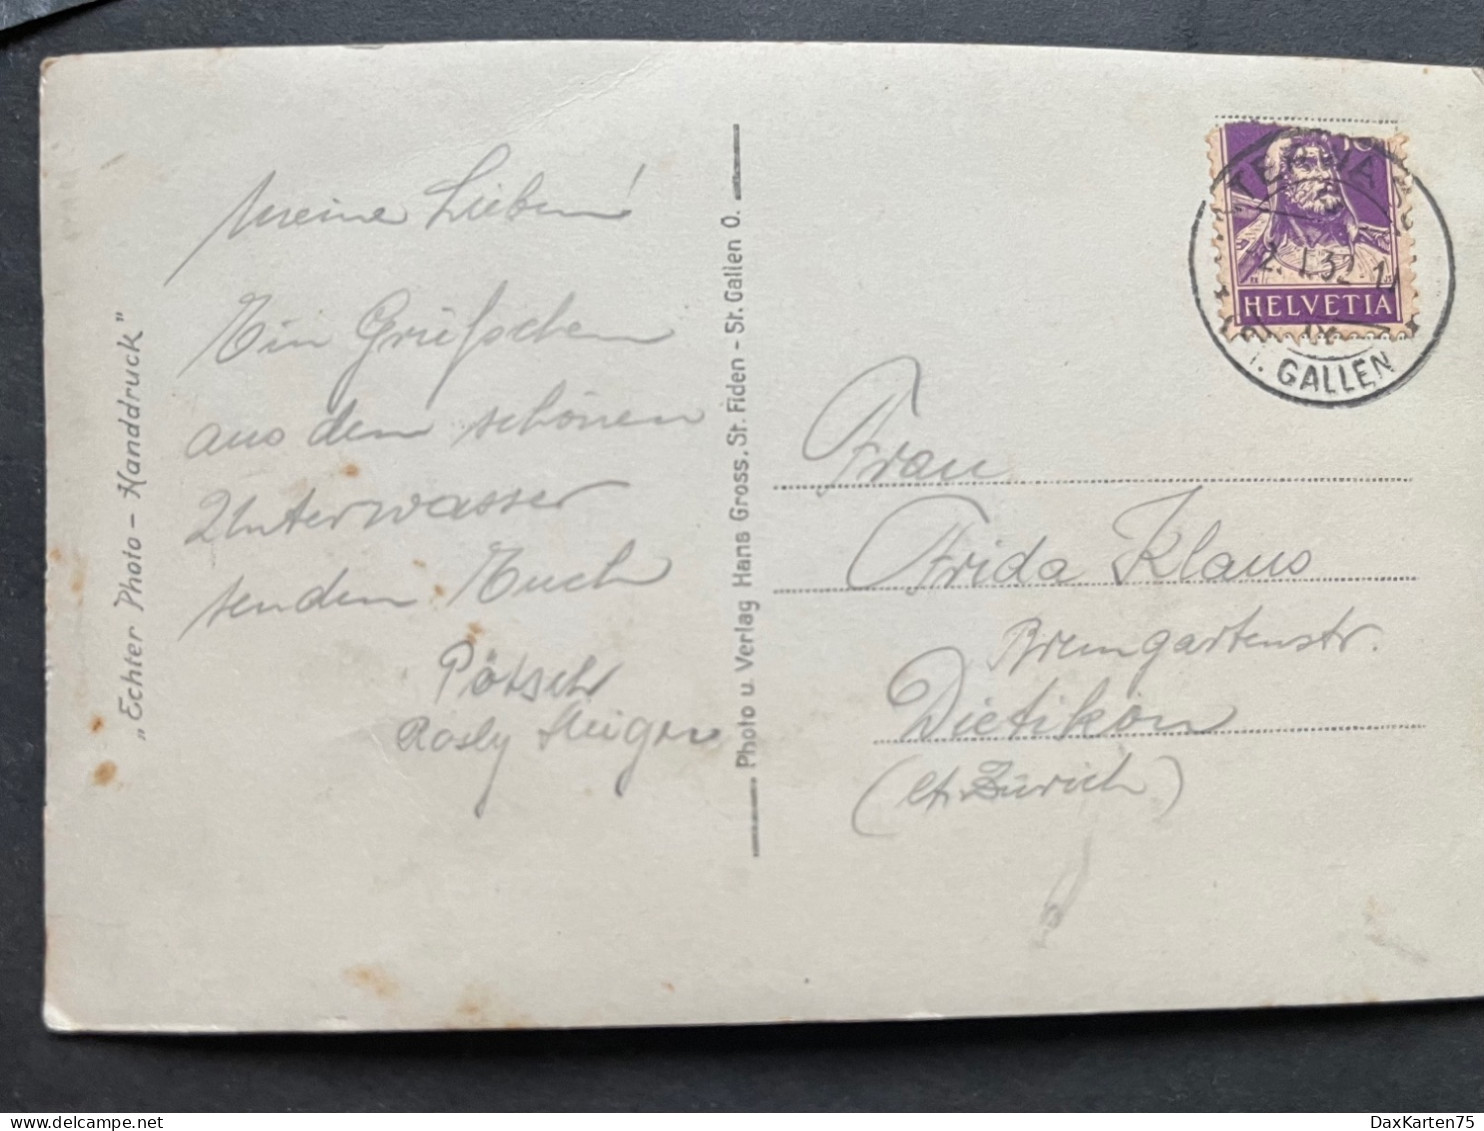 "Echter Photo - Handdruck"
Meine Lieben!
Ein Grüsschen
aus dem schönen
Unterwasser
senden Euch
Rösly
Photo u. Verlag Hans Gross, St. Fiden - St. Gallen O.
10
HELVETIA
2. I. 32. 1
GALLEN
Frau
Frida Klaus
Bremgartenstr.
Dietikon
(Ct. Zürich)
DaxKarten75